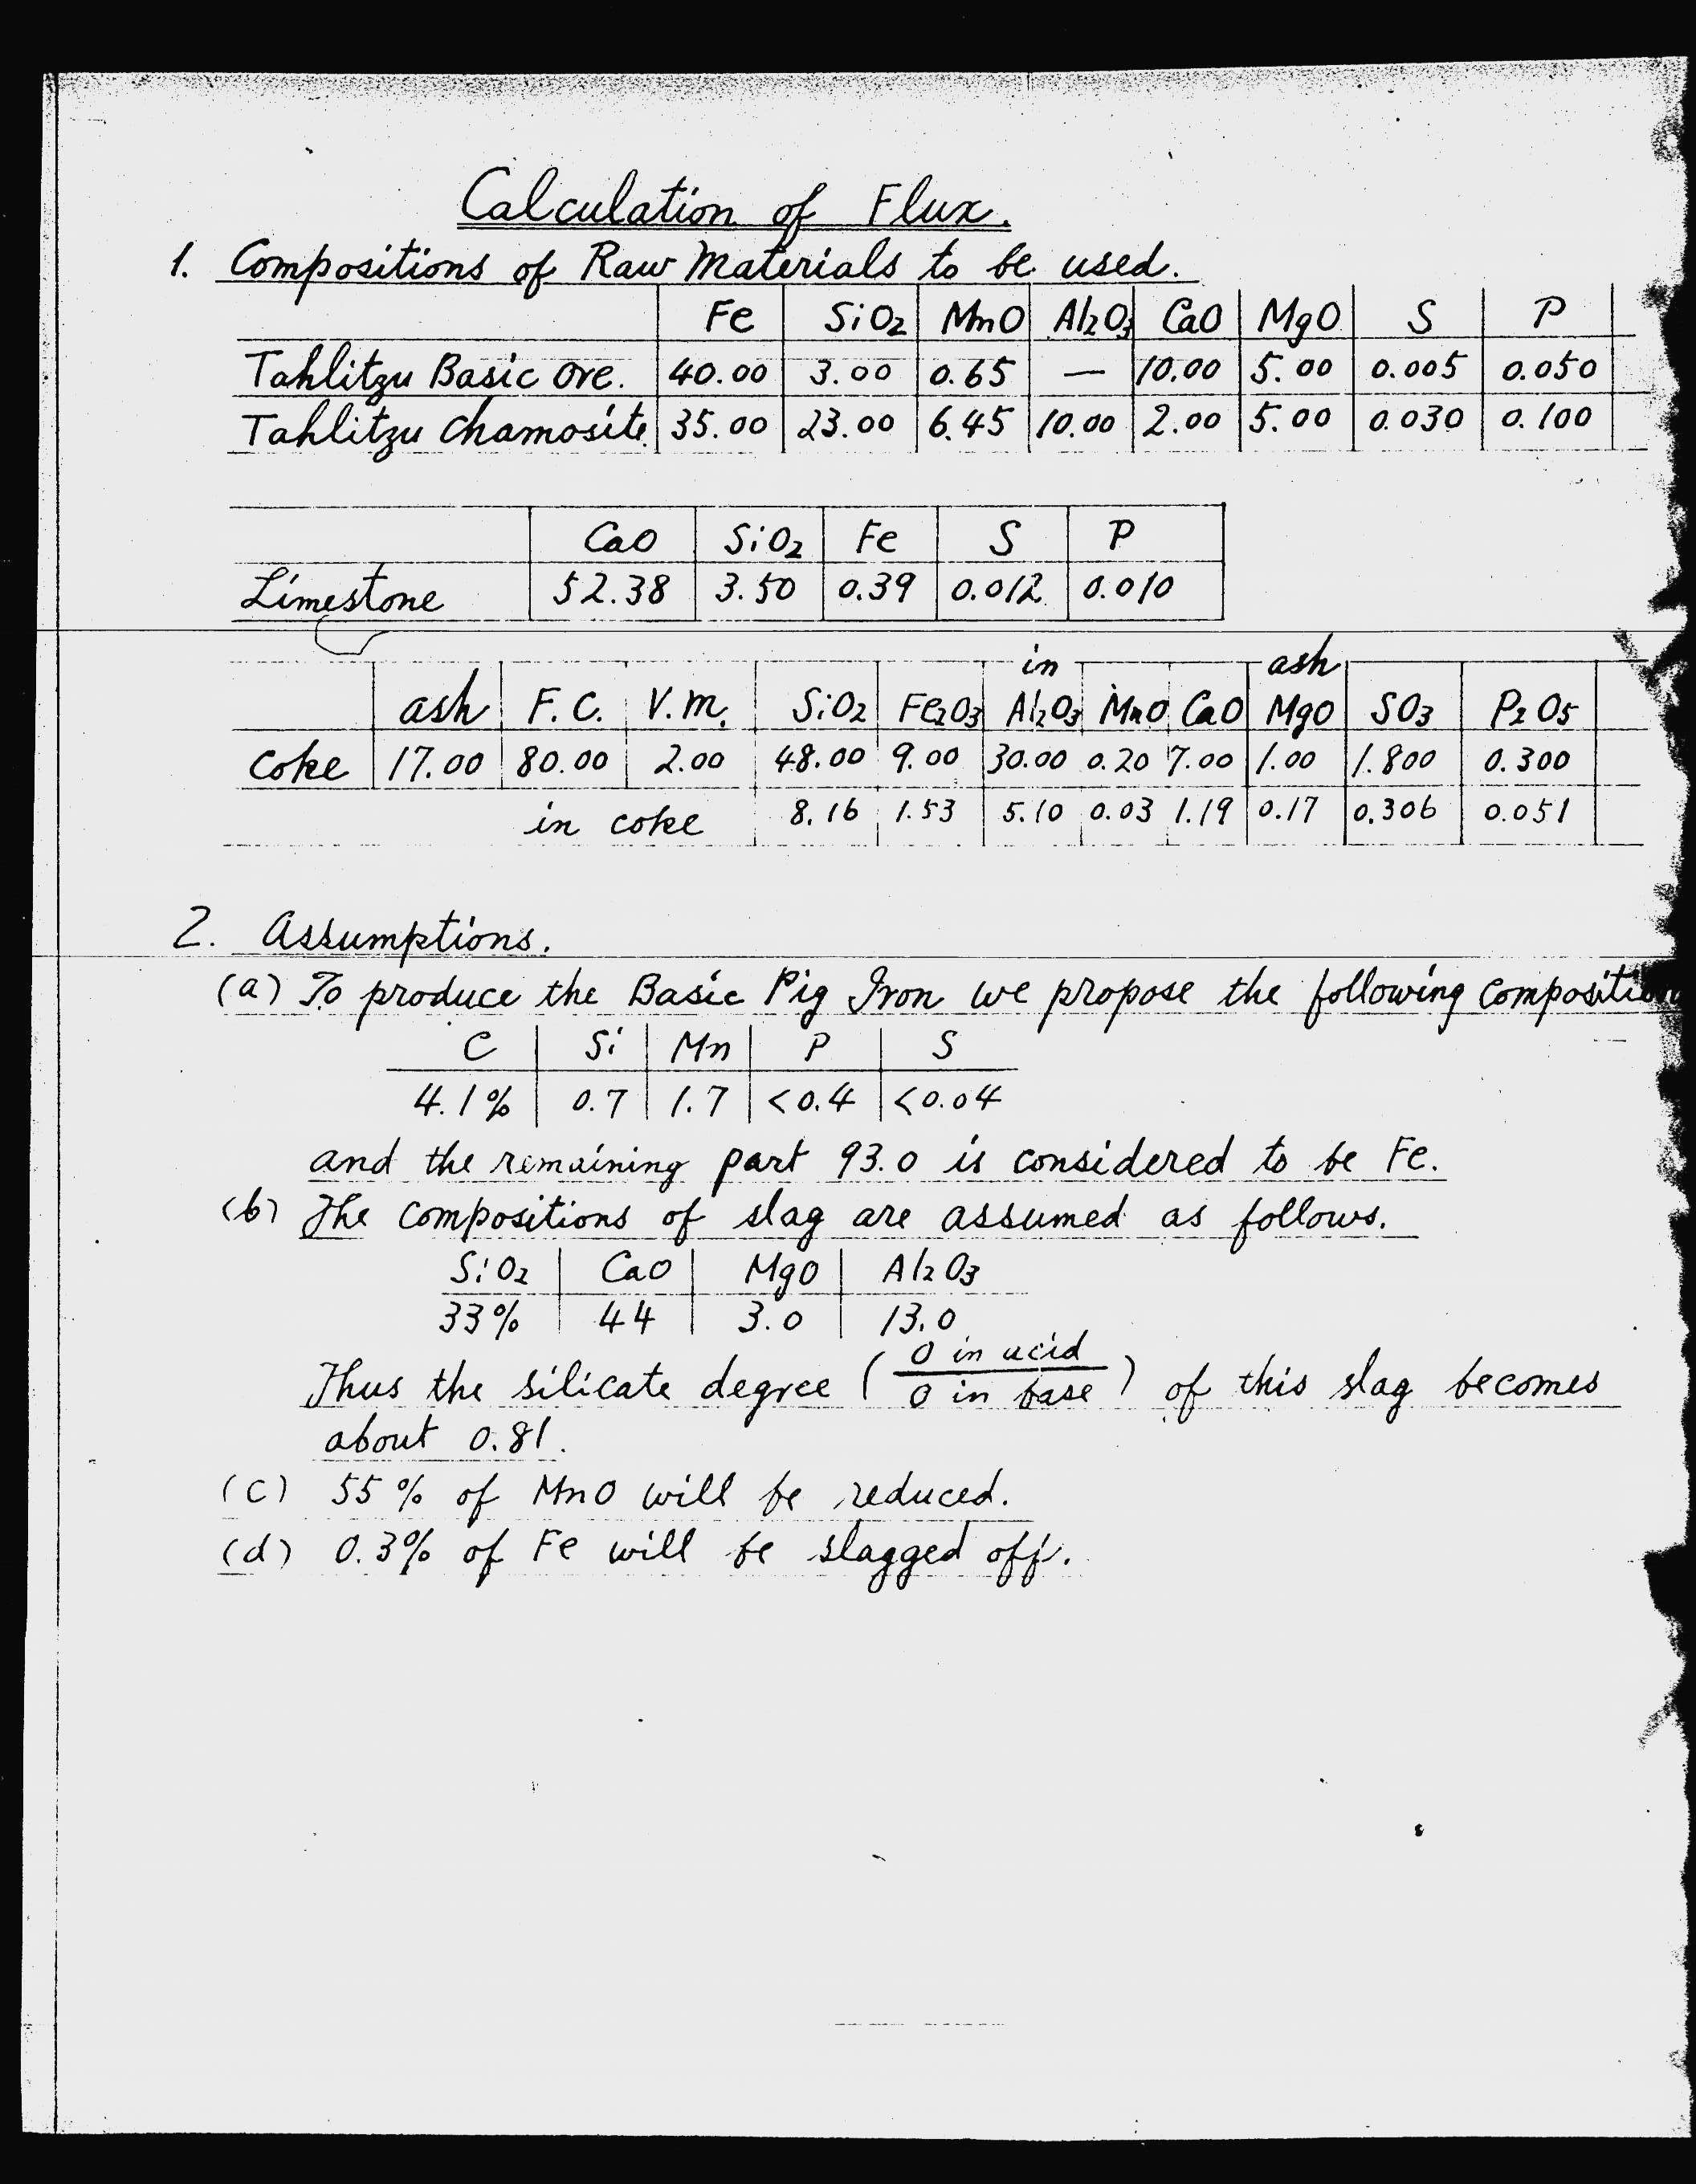 Calculation of Flux.
1. Compositions of Raw Materials to be used.
Fe SiO2 MnO Al2O3 CaO MgO S P
Tahlitzu Basic ore. 40.00 3.00 0.65 — 10.00 5.00 0.005 0.050
Tahlitzu Chamosite. 35.00 23.00 6.45 10.00 2.00 5.00 0.030 0.100
CaO SiO2 Fe S P
Limestone 52.38 3.50 0.39 0.012 0.010
in ash
ash F.C. V.m. SiO2 Fe2O3 Al2O3 MnO CaO MgO SO3 P2O5
Coke 17.00 80.00 2.00 48.00 9.00 30.00 0.20 7.00 1.00 1.800 0.300
in coke 8.16 1.53 5.10 0.03 1.19 0.17 0.306 0.051
2. Assumptions.
(a) To produce the Basic Pig Iron we propose the following Compositi
C Si Mn P S
4.1% 0.7 1.7 <0.4 <0.04
and the remaining part 93.0 is considered to be Fe.
(b) The compositions of slag are assumed as follows.
SiO2 CaO MgO Al2O3
33% 44 3.0 13.0
Thus the silicate degree (O in acid / O in base) of this slag becomes
about 0.81.
(c) 55% of MnO will be reduced.
(d) 0.3% of Fe will be slagged off.